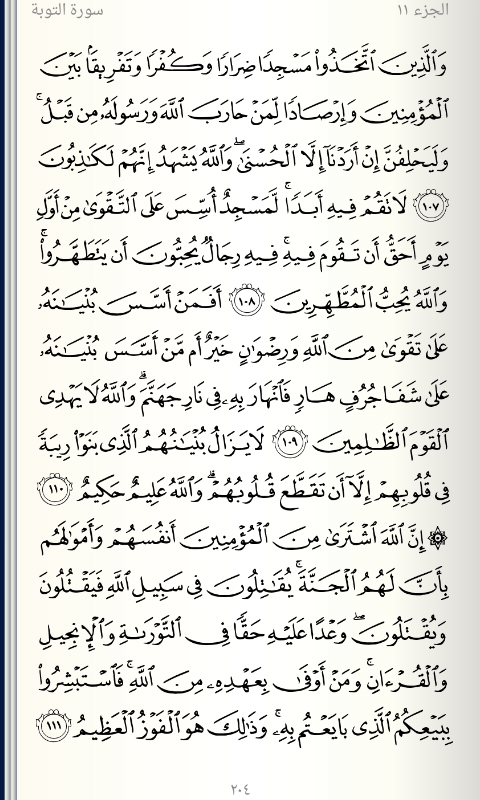 الجزء ١١
سورة التوبة
وَٱلَّذِينَ ٱتَّخَذُوا۟ مَسْجِدًا ضِرَارًا وَكُفْرًا وَتَفْرِيقًۢا بَيْنَ
ٱلْمُؤْمِنِينَ وَإِرْصَادًا لِّمَنْ حَارَبَ ٱللَّهَ وَرَسُولَهُۥ مِن قَبْلُ ۚ
وَلَيَحْلِفُنَّ إِنْ أَرَدْنَآ إِلَّا ٱلْحُسْنَىٰ ۖ وَٱللَّهُ يَشْهَدُ إِنَّهُمْ لَكَـٰذِبُونَ
١٠٧ لَا تَقُمْ فِيهِ أَبَدًا ۚ لَّمَسْجِدٌ أُسِّسَ عَلَى ٱلتَّقْوَىٰ مِنْ أَوَّلِ
يَوْمٍ أَحَقُّ أَن تَقُومَ فِيهِ ۚ فِيهِ رِجَالٌ يُحِبُّونَ أَن يَتَطَهَّرُوا۟ ۚ
وَٱللَّهُ يُحِبُّ ٱلْمُطَّهِّرِينَ ١٠٨ أَفَمَنْ أَسَّسَ بُنْيَـٰنَهُۥ
عَلَىٰ تَقْوَىٰ مِنَ ٱللَّهِ وَرِضْوَٰنٍ خَيْرٌ أَم مَّنْ أَسَّسَ بُنْيَـٰنَهُۥ
عَلَىٰ شَفَا جُرُفٍ هَارٍ فَٱنْهَارَ بِهِۦ فِى نَارِ جَهَنَّمَ ۗ وَٱللَّهُ لَا يَهْدِى
ٱلْقَوْمَ ٱلظَّـٰلِمِينَ ١٠٩ لَا يَزَالُ بُنْيَـٰنُهُمُ ٱلَّذِى بَنَوْا۟ رِيبَةً
فِى قُلُوبِهِمْ إِلَّآ أَن تَقَطَّعَ قُلُوبُهُمْ ۗ وَٱللَّهُ عَلِيمٌ حَكِيمٌ ١١٠
۞ إِنَّ ٱللَّهَ ٱشْتَرَىٰ مِنَ ٱلْمُؤْمِنِينَ أَنفُسَهُمْ وَأَمْوَٰلَهُم
بِأَنَّ لَهُمُ ٱلْجَنَّةَ ۚ يُقَـٰتِلُونَ فِى سَبِيلِ ٱللَّهِ فَيَقْتُلُونَ
وَيُقْتَلُونَ ۖ وَعْدًا عَلَيْهِ حَقًّا فِى ٱلتَّوْرَىٰةِ وَٱلْإِنجِيلِ
وَٱلْقُرْءَانِ ۚ وَمَنْ أَوْفَىٰ بِعَهْدِهِۦ مِنَ ٱللَّهِ ۚ فَٱسْتَبْشِرُوا۟
بِبَيْعِكُمُ ٱلَّذِى بَايَعْتُم بِهِۦ ۚ وَذَٰلِكَ هُوَ ٱلْفَوْزُ ٱلْعَظِيمُ ١١١
٢٠٤